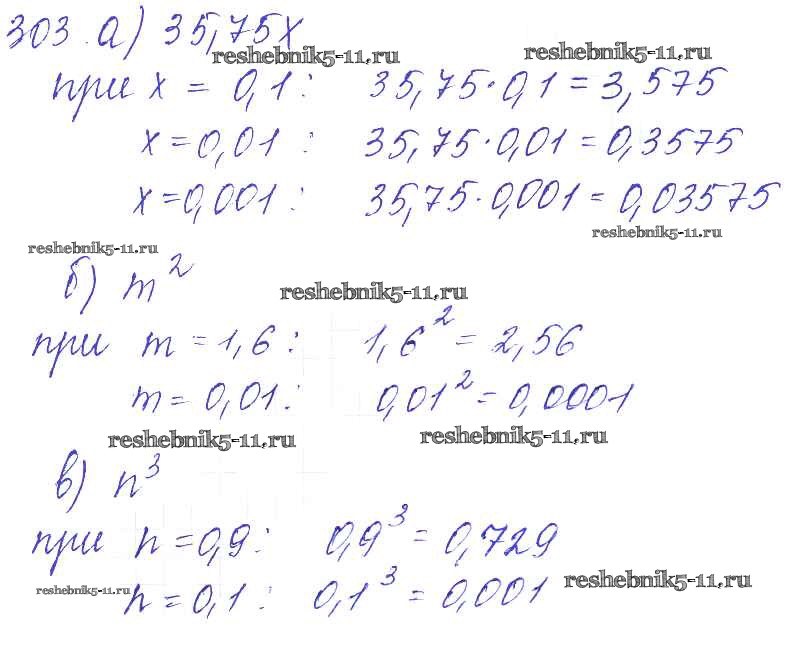 303. а) 35,75x
reshebnik5-11.ru
reshebnik5-11.ru
при x = 0,1: 35,75·0,1 = 3,575
x = 0,01: 35,75·0,01 = 0,3575
x = 0,001: 35,75·0,001 = 0,03575
reshebnik5-11.ru
reshebnik5-11.ru
б) m²
reshebnik5-11.ru
при m = 1,6: 1,6² = 2,56
m = 0,01: 0,01² = 0,0001
reshebnik5-11.ru
reshebnik5-11.ru
в) n³
при n = 0,9: 0,9³ = 0,729
reshebnik5-11.ru
reshebnik5-11.ru
n = 0,1: 0,1³ = 0,001